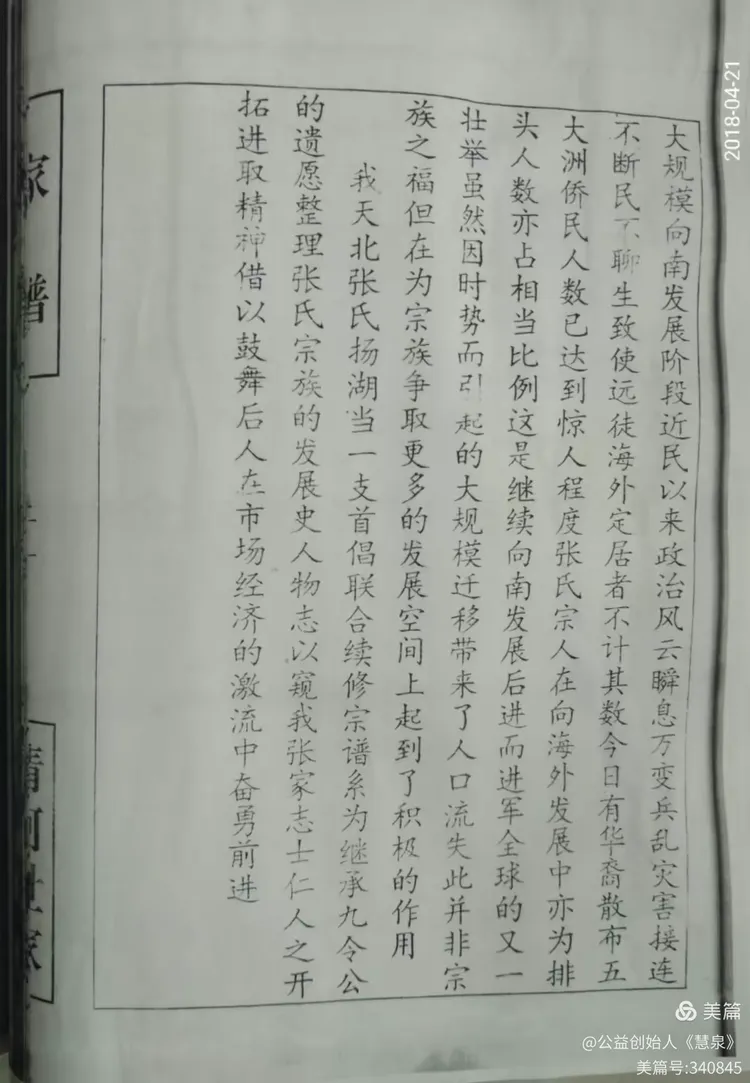 大规模向南发展阶段近民以来政治风云瞬息万变兵乱灾害接连
不断民不聊生致使远徒海外定居者不计其数今日有华裔散布五
大洲侨民人数已达到惊人程度张氏宗人在向海外发展中亦为排
头人数亦占相当比例这是继续向南发展后进而进军全球的又一
壮举虽然因时势而引起的大规模迁移带来了人口流失此并非宗
族之福但在为宗族争取更多的发展空间上起到了积极的作用
我天北张氏扬湖当一支首倡联合续修宗谱系为继承九令公
的遗愿整理张氏宗族的发展史人物志以窥我张家志士仁人之开
拓进取精神借以鼓舞后人在市场经济的激流中奋勇前进
家谱
清河世家
2018-04-21
美篇
@公益创始人《慧泉》
美篇号:340845